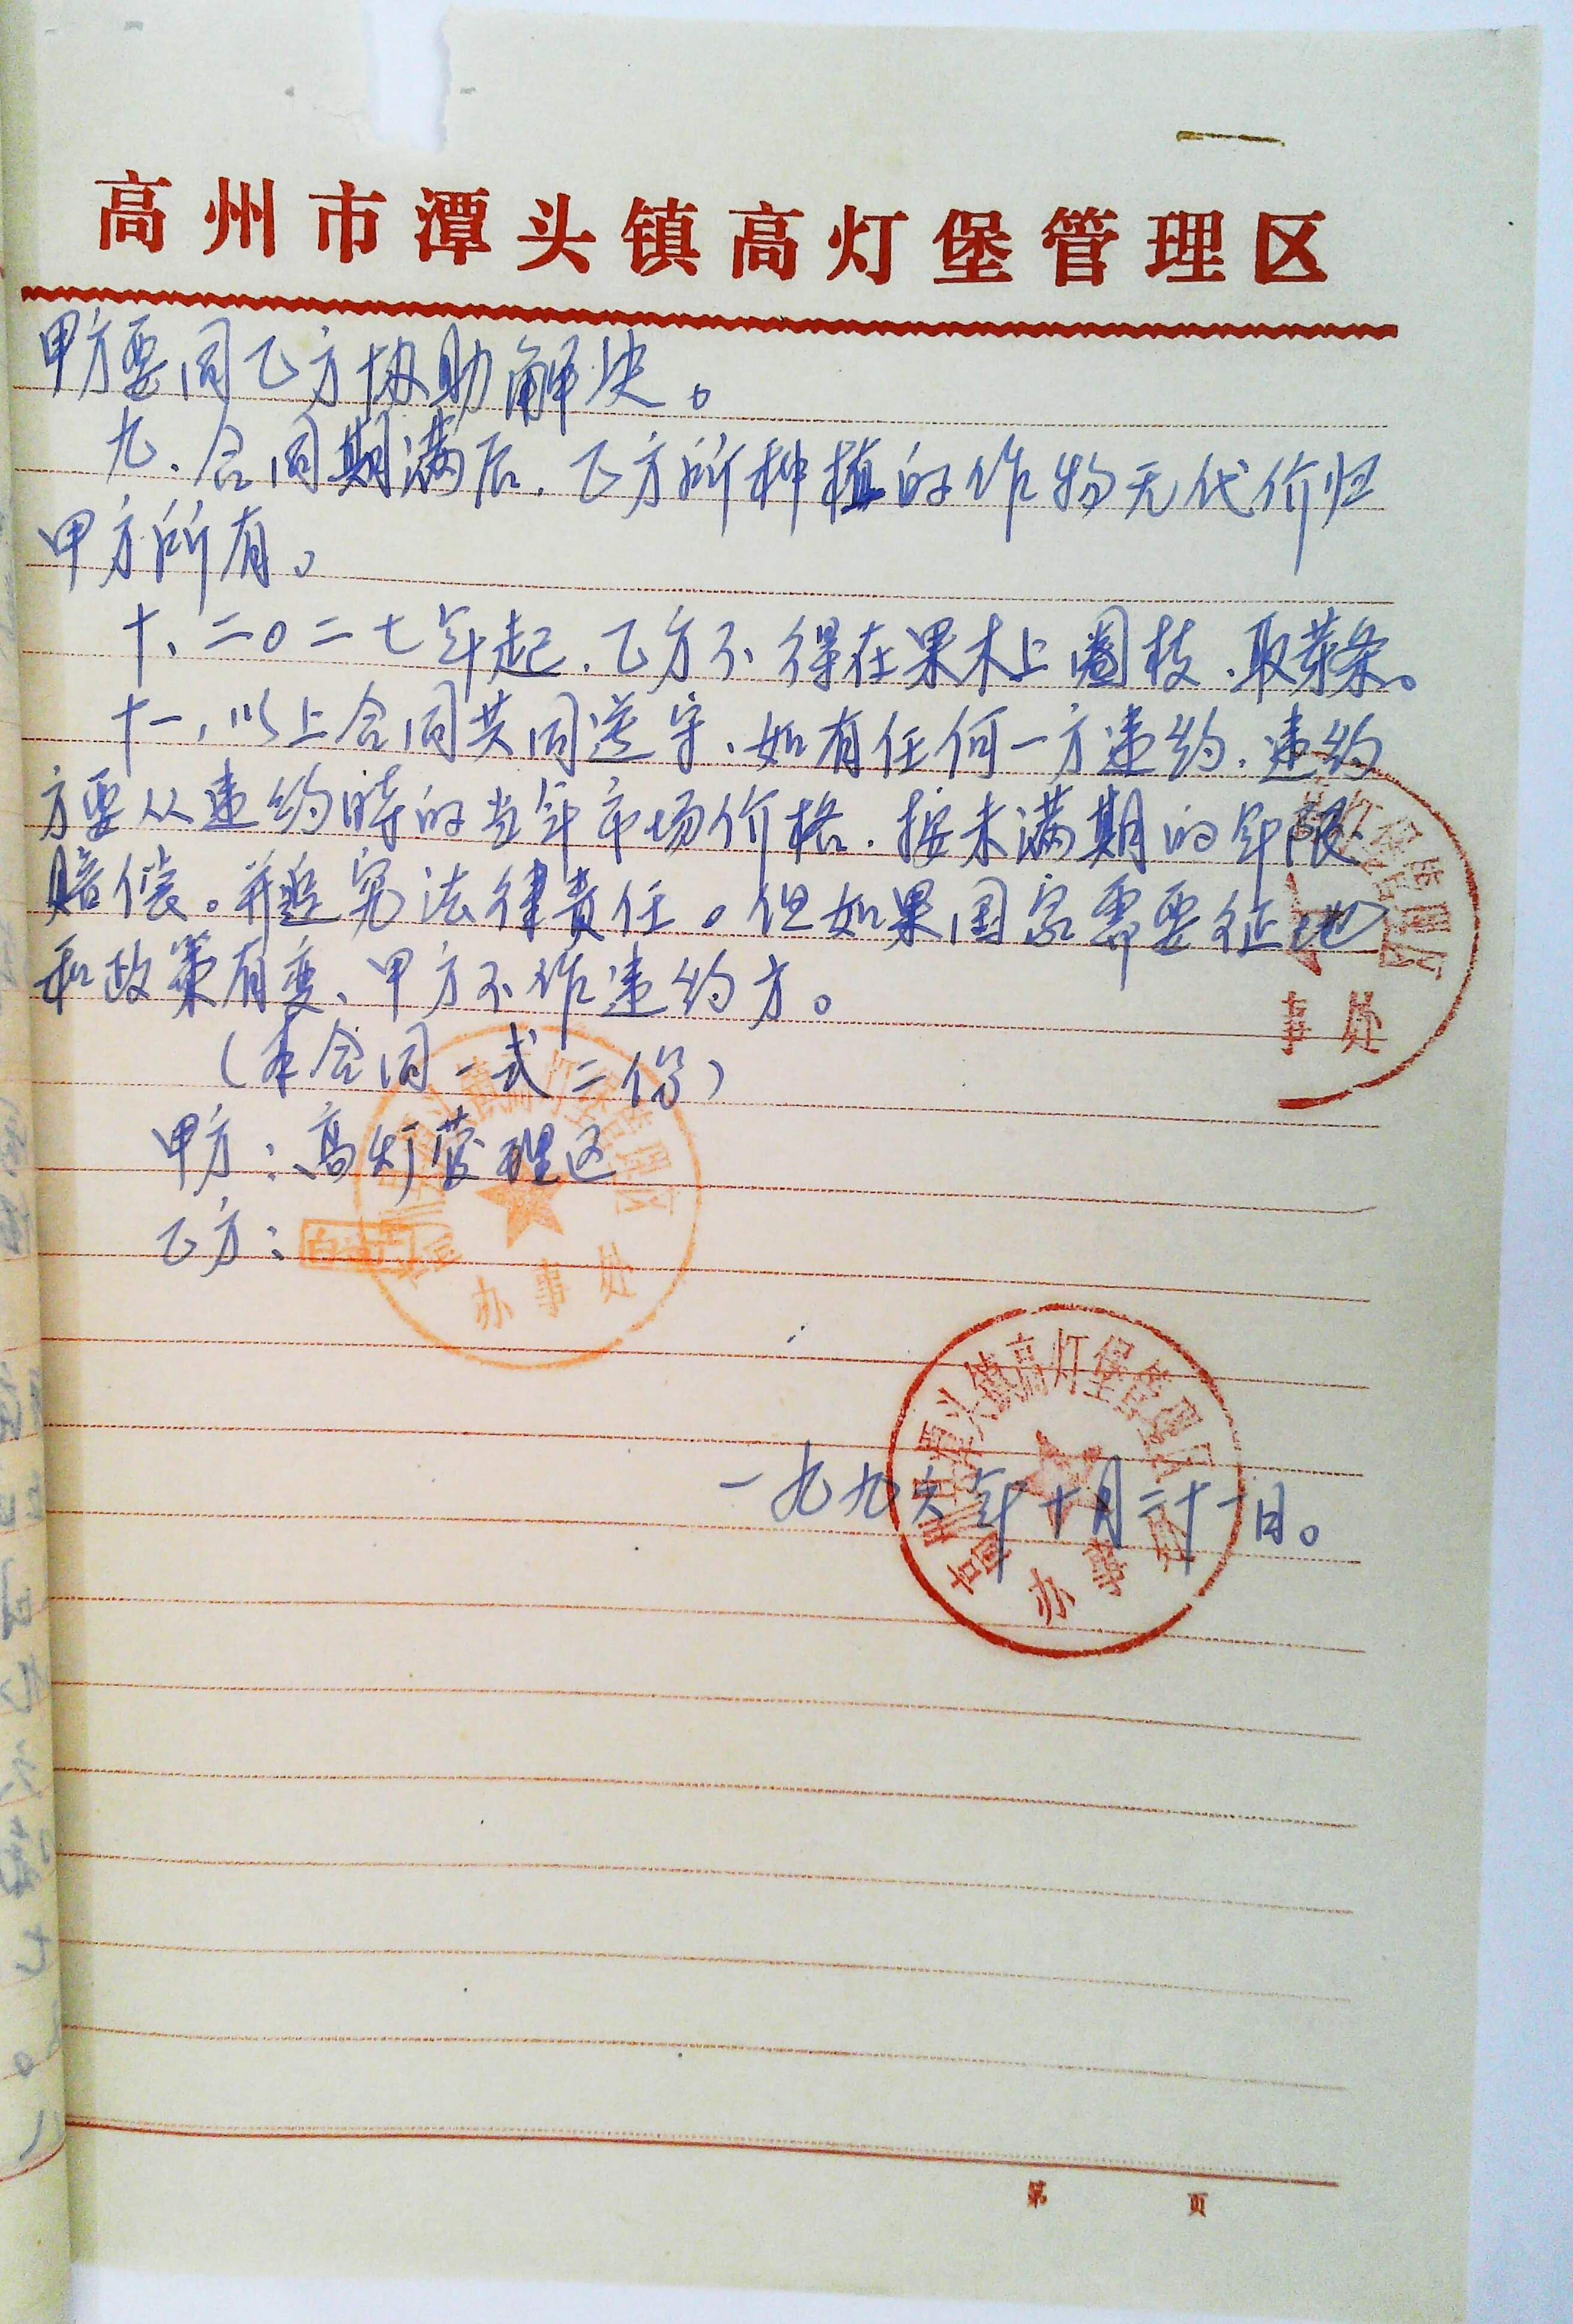 高州市潭头镇高灯堡管理区
甲方要同乙方协助解决。
九、合同期满后、乙方所种植的作物无代价归
甲方所有。
十、二〇二七年起、乙方不得在果木上圈枝、取芽条。
十一、以上合同共同遵守、如有任何一方违约、违约
方要从违约时的当年市场价格、按未满期的年限
赔偿。并追究法律责任。但如果国家需要征地
和政策有变、甲方不作违约方。
事处
(本合同一式二份)
甲方:高灯管理区
乙方:
办事处
头镇高灯堡管理区
一九九六年十月二十一日。
办事处
第 页